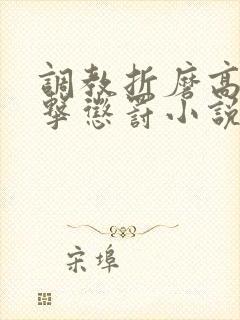 調教折磨高
擊懲罰小說
宋埠